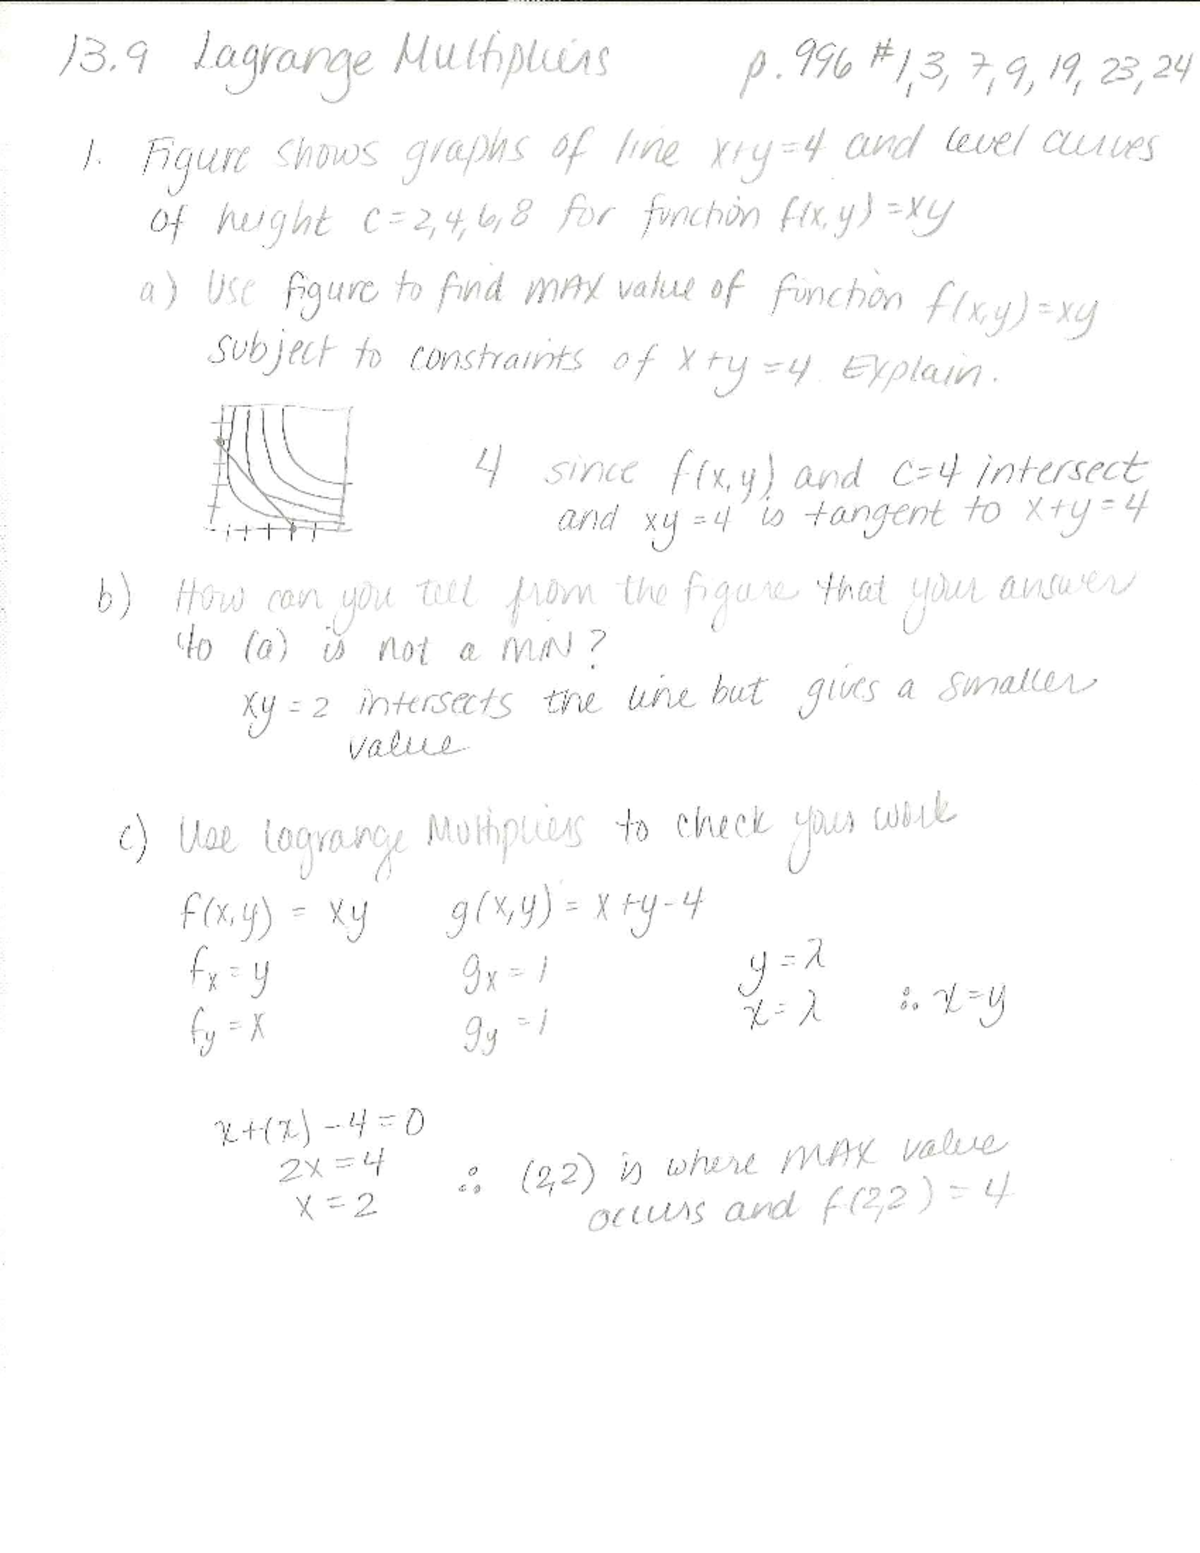 13.9 Lagrange Multipliers p. 996 #1,3,7,9,19,23,24
1. Figure shows graphs of line x+y=4 and level curves
of height c=2,4,6,8 for function f(x,y)=xy
a) Use figure to find MAX value of function f(x,y)=xy
subject to constraints of x+y=4. Explain.
4 since f(x,y) and c=4 intersect
and xy=4 is tangent to x+y=4
b) How can you tell from the figure that your answer
to (a) is not a MIN?
xy=2 intersects the line but gives a smaller
value
c) Use Lagrange Multipliers to check your work
f(x,y) = xy g(x,y) = x+y-4
fx=y gx=1 y=λ
fy=x gy=1 x=λ ∴ x=y
x+(x)-4=0
2x=4 ∴ (2,2) is where MAX value
x=2 occurs and f(2,2)=4